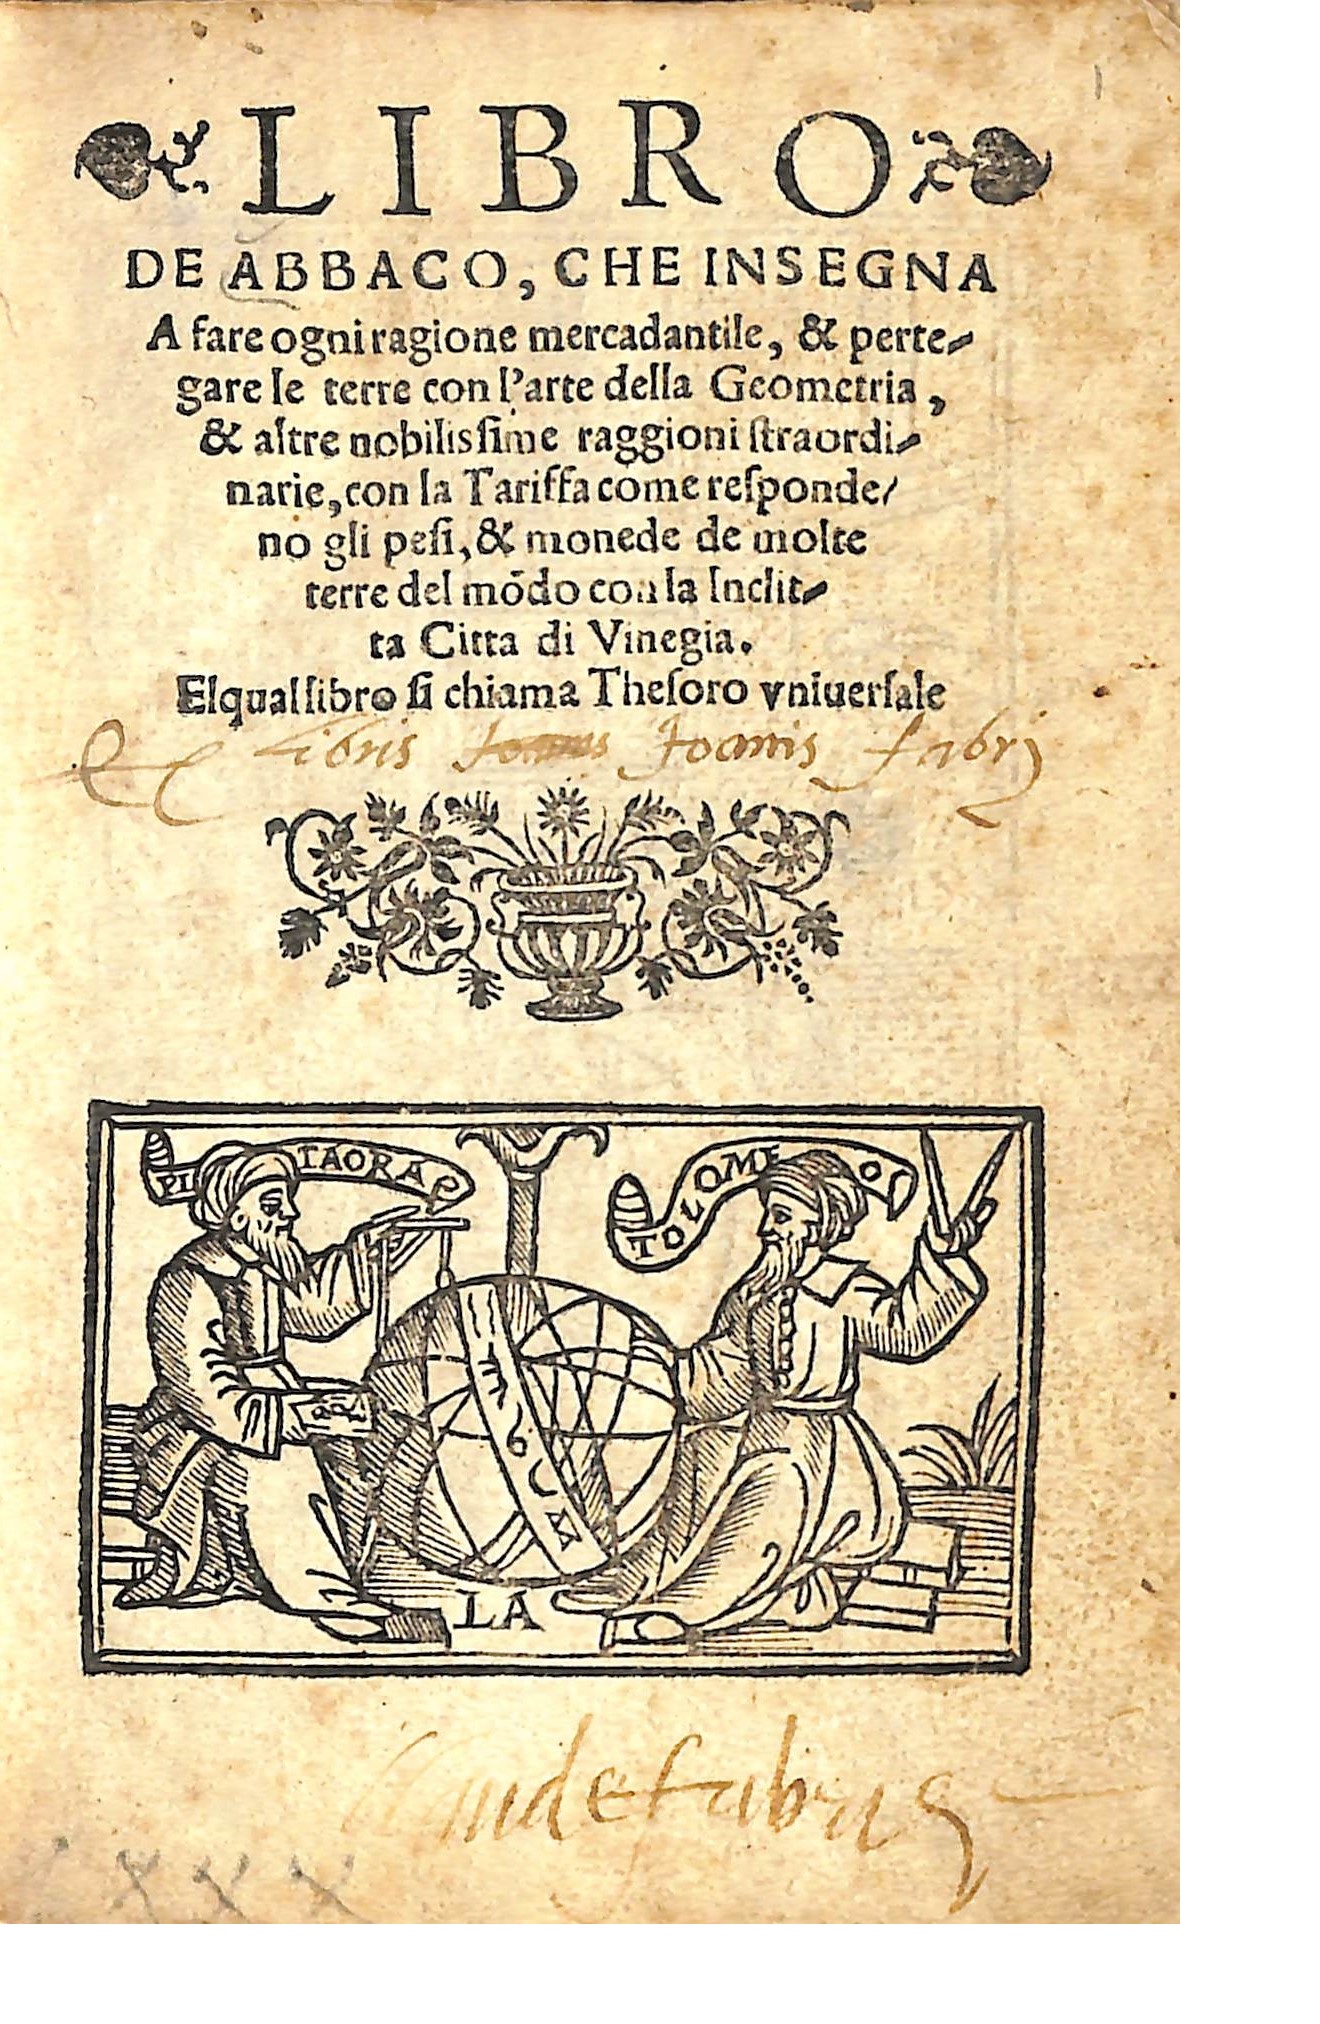 LIBRO
DE ABBACO, CHE INSEGNA
A fare ogni ragione mercadantile, & perte-
gare le terre con l'arte della Geometria,
& altre nobilissime raggioni straordi-
narie, con la Tariffa come responde/
no gli pesi, & monede de molte
terre del mōdo con la Inclit-
ta Citta di Vinegia.
El qual libro si chiama Thesoro vniuersale
Ex libris Joannis Fabrj
PI TAORA
TOLOME O
LA
de fabris
XXX